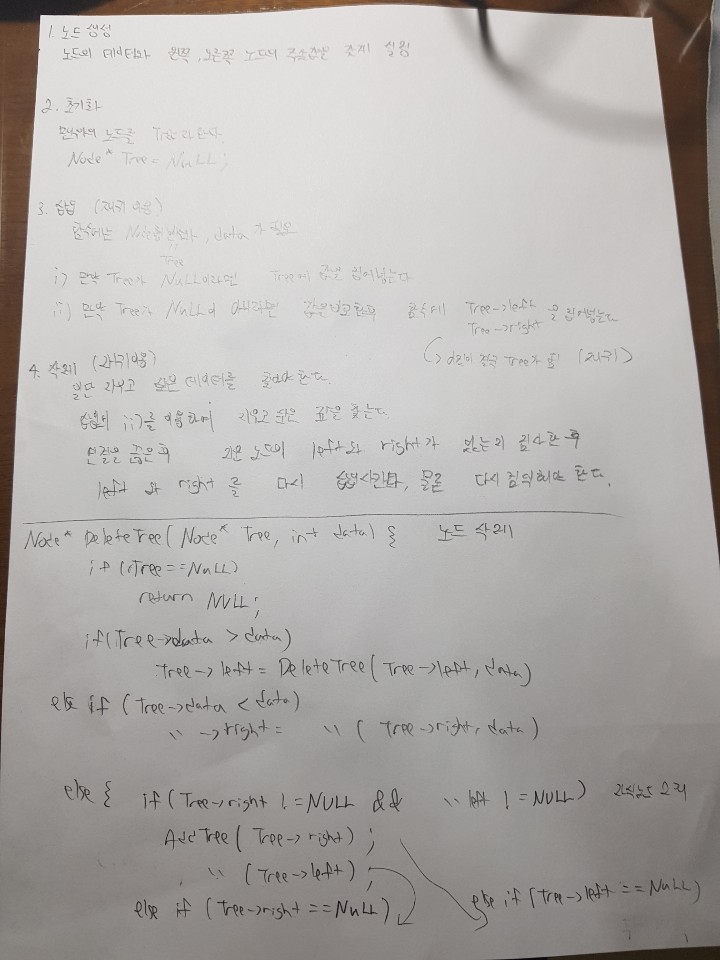 1. 노드 생성
노드의 데이터와 왼쪽, 오른쪽 노드의 주소값을
2. 초기화
노드를 Tree라 한다.
Node* Tree = NULL;
3. 삽입 (재귀 이용)
함수에는 Node형 변수와, data가 필요
Tree
i) 만약 Tree가 NULL이라면 Tree에 값을 집어넣는다
ii) 만약 Tree가 NULL이 아니라면 값을 비교한 후 함수에 Tree->left
Tree->right 을 집어넣는다
Tree가 됨 (재귀)
4. 삭제 (재귀이용)
일단 지우고 싶은 데이터를 찾아야 한다.
삽입의 ii)를 이용하여 지우고 싶은 값을 찾는다.
연결을 끊은 후 지운 노드의 left와 right가 있는지 검사한 후
left와 right를 다시 삽입시킨다, 물론 다시 정의해야 한다.
Node* DeleteTree( Node* Tree, int data) { 노드 삭제
if (Tree==NULL)
return NULL;
if(Tree->data > data)
Tree->left = DeleteTree( Tree->left, data)
else if (Tree->data < data)
〃 ->right = 〃 ( Tree->right, data)
else { if( Tree->right != NULL && 〃 left != NULL) 자식노드 2개
AddTree( Tree->right);
〃 (Tree->left);
else if (Tree->right == NULL)
else if (Tree->left == NULL)